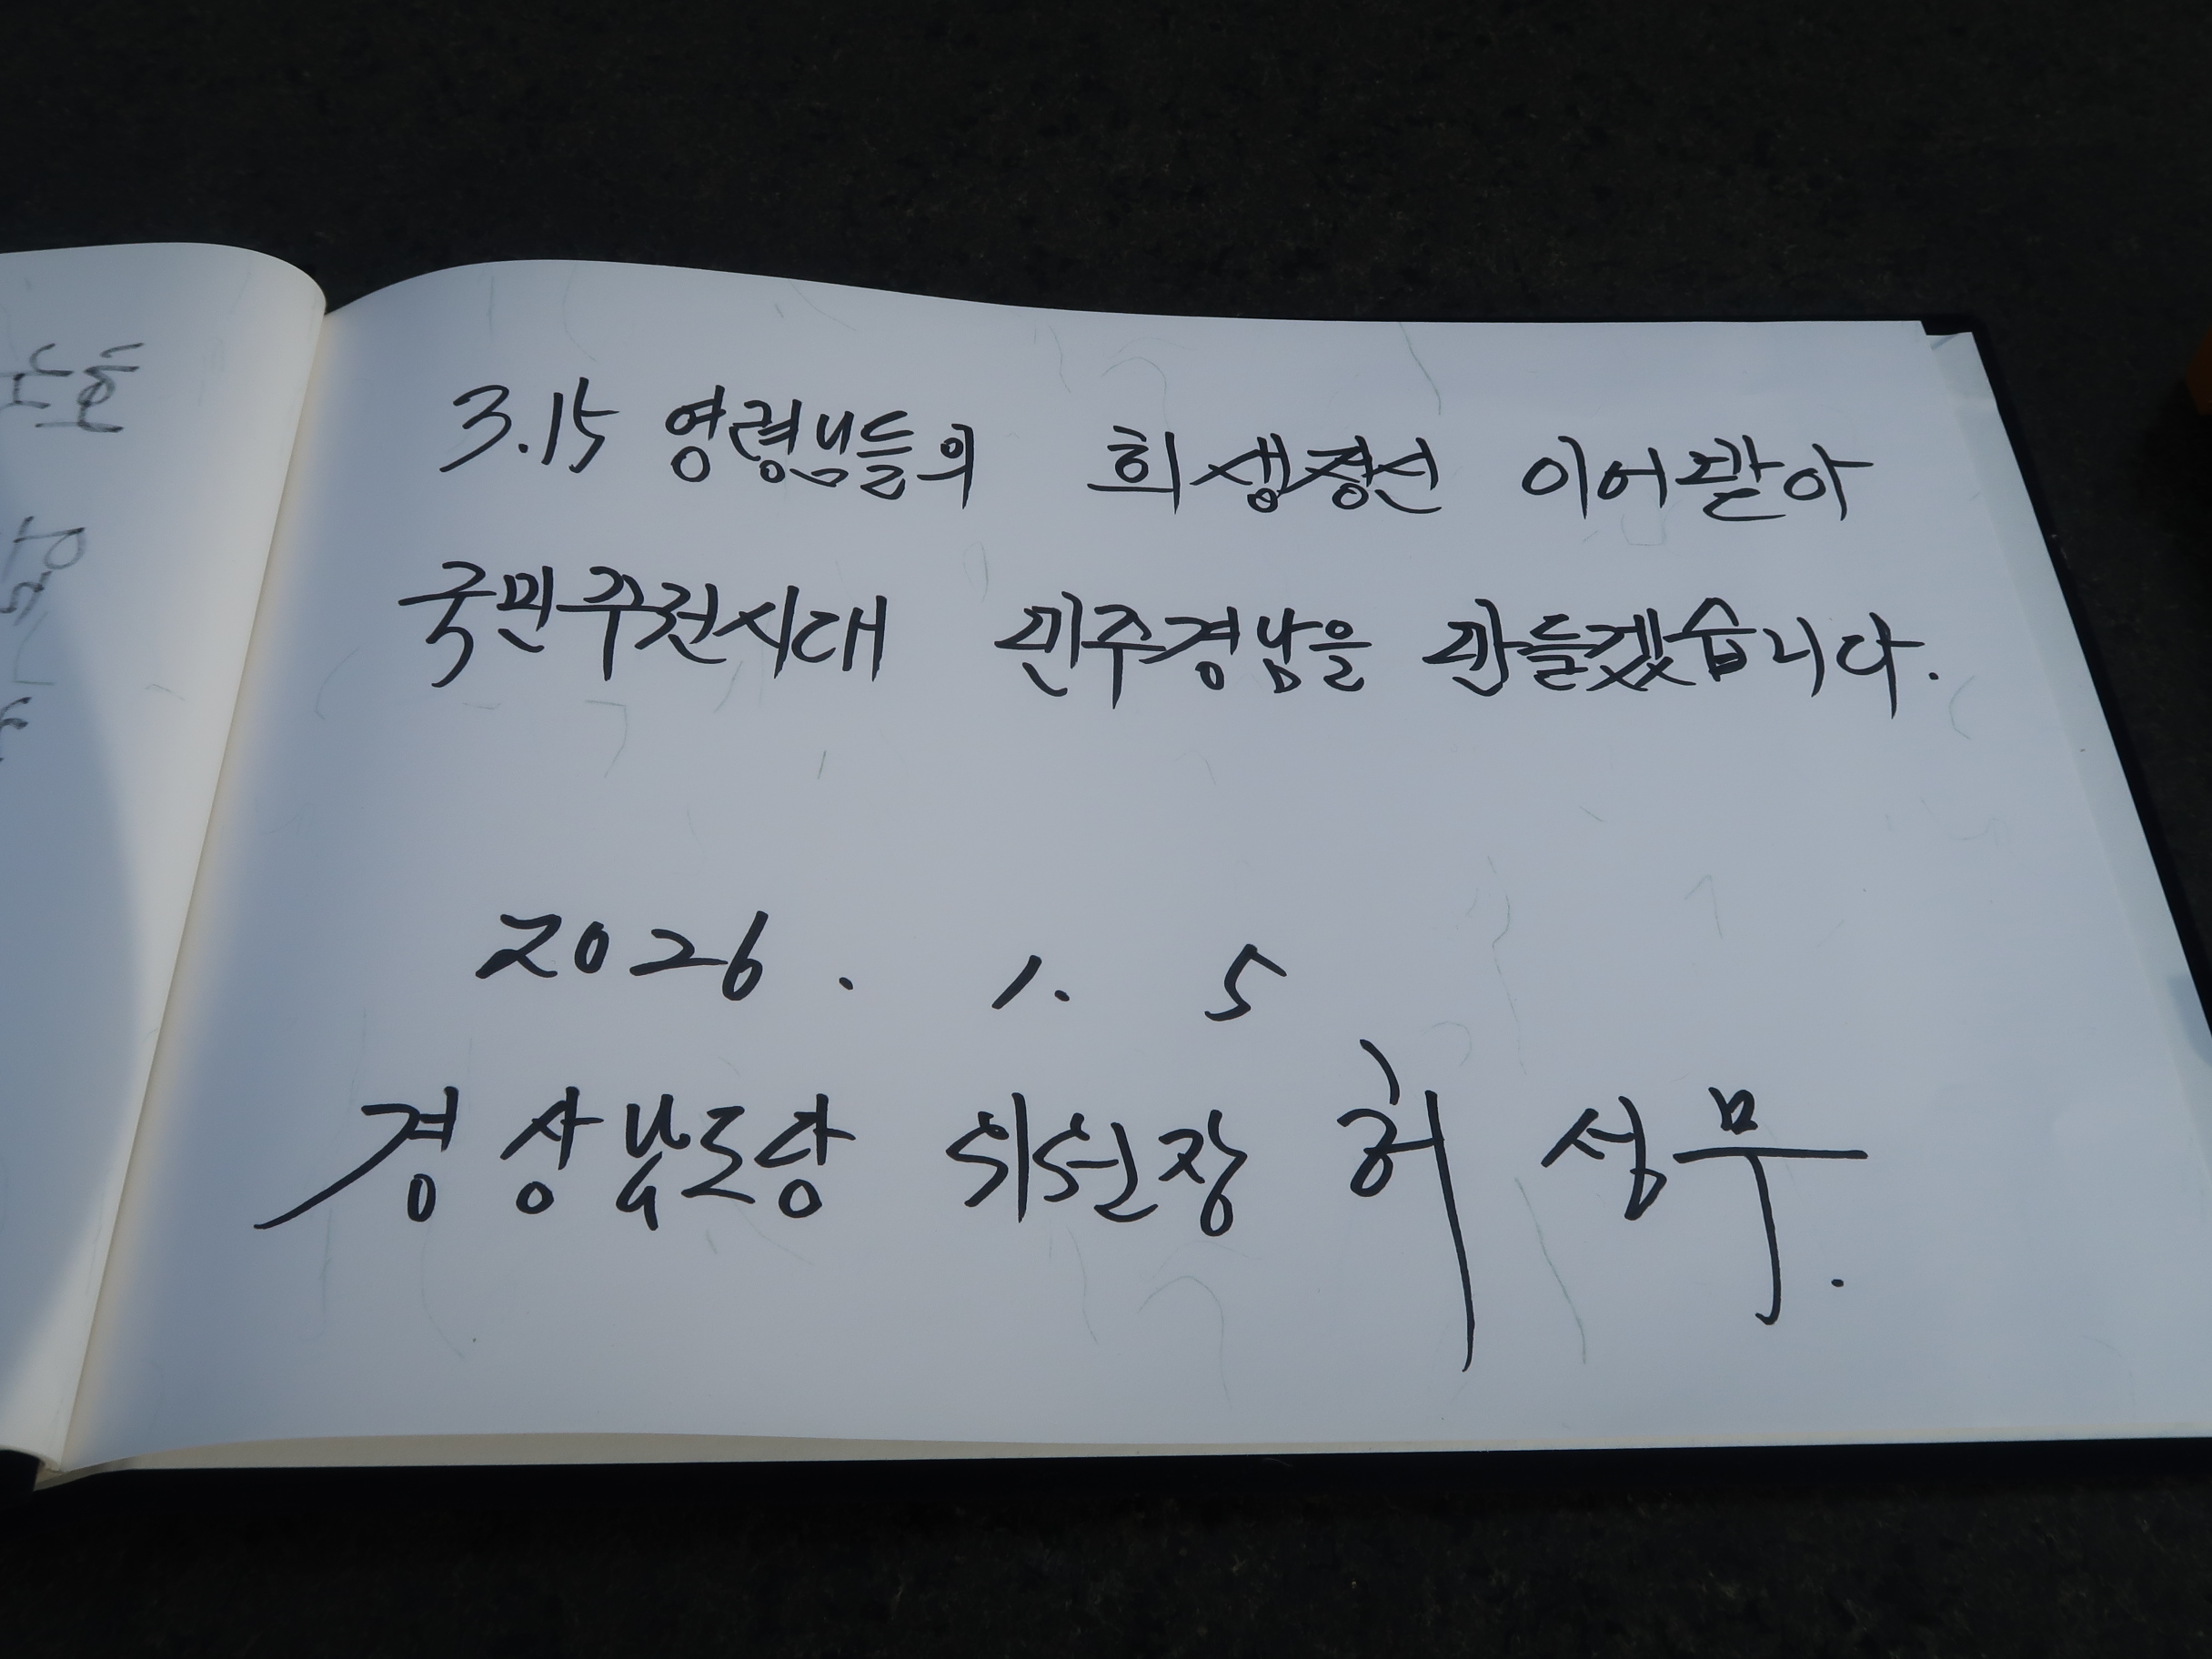 3.15 영령님들의 희생정신 이어받아
국민주권시대 민주경남을 만들겠습니다.
2026. 1. 5
경상남도당 위원장 허 성무.